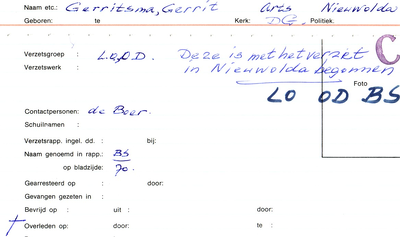 Naam etc.: Gerritsma, Gerrit arts Nieuwolda
Geboren: te Kerk: DG. Politiek.
Verzetsgroep : L.O,O.D. Deze is met het verzet
Verzetswerk : in Nieuwolda begonnen
LO OD BS
Foto
C
Contactpersonen: de Boer.
Schuilnamen :
Verzetsrapp. ingel. dd. : bij:
Naam genoemd in rapp.: BS
op bladzijde: 70.
Gearresteerd op : door:
Gevangen gezeten in :
Bevrijd op : uit : door:
† Overleden op: door: te :